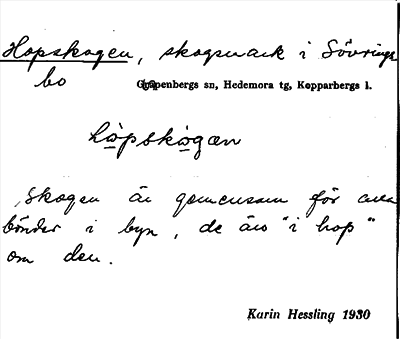 Hopskogen, skogsmark i Sövrings
bo Grapenbergs sn, Hedemora tg, Kopparbergs l.
hòpskògan
Skogen är gemensam för alla
bönder i byn, de äro "i hop"
om den.
Karin Hessling 1930